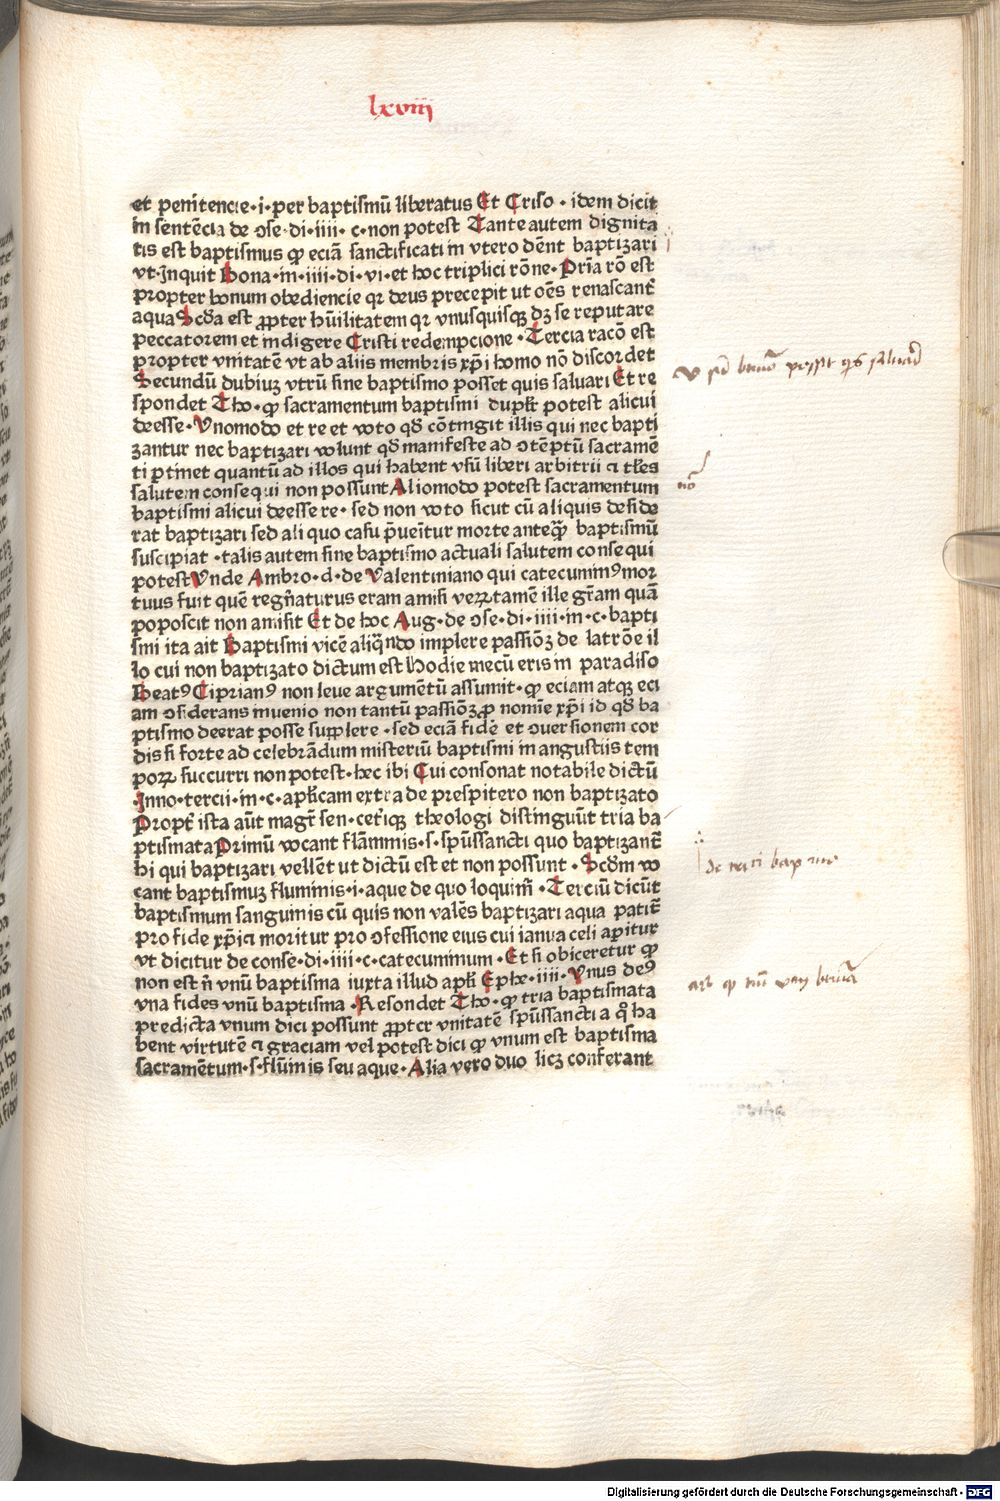 lxviij
et penitencie·i·per baptismū liberatus Et Criso·idem dicit
in sentēcia de ↄse·di·iiii·c·non potest Tante autem dignita
tis est baptismus ꝙ eciā sanctificati in vtero dēnt baptizari
vt·Inquit Bona·in·iiii·di·vi·et hoc triplici rōne·Pria rō est
propter bonum obediencie qr deus precepit ut oēs renascant̄
aqua Scd̄a est ꝓpter hūilitatem qr vnusquisqꝫ dꝫ se reputare
peccatorem et indigere Cristi redempcione·Tercia racō est
propter vnitatē vt ab aliis membris xp̄i homo nō discordet
Secundū dubiuꝫ vtrū sine baptismo posset quis saluari Et re
spondet Tho·ꝙ sacramentum baptismi duplr̄ potest alicui
deesse·Vnomodo et re et voto qd̄ cōtingit illis qui nec bapti
zantur nec baptizari volunt qd̄ manifeste ad ↄtēptū sacramē
ti ptinet quantū ad illos qui habent vsū liberi arbitrii ⁊ tl̄es
salutem consequi non possunt Aliomodo potest sacramentum
baptismi alicui deesse re·sed non voto sicut cū aliquis deside
rat baptizari sed aliquo casu p̄ueītur morte anteqꝫ̄ baptismū
suscipiat·talis autem sine baptismo actuali salutem consequi
potest Vnde Ambro·d·de Valentiniano qui catecuminꝰ mor
tuus fuit quē regn̄aturus eram amisi veꝝtamē ille gr̄am quā
poposcit non amisit Et de hoc Aug·de ↄse·di·iiii·in·c·bapti
smi ita ait Baptismi vicē aliqn̄do implere passiōꝫ de latrōe il
lo cui non baptizato dictum est Hodie mecū eris in paradiso
Beatꝰ Ciprianꝰ non leue argumētū assumit·ꝙ eciam atqꝫ eci
am ↄsiderans inuenio non tantū passiōꝫ ꝓ nomīe xp̄i id qd̄ ba
ptismo deerat posse supplere·sed eciā fidē et ↄuersionem cor
dis si forte ad celebrādum misteriū baptismi in angustiis tem
poꝝ succurri non potest·hec ibi Cui consonat notabile dictū
·Inno·tercii·in·c·apl̄icam extra de prespitero non baptizato
Propt̄ ista aūt magr̄ sen·cet̄iqꝫ theologi distinguūt tria ba
ptismata Primū vocant flāmmis·s·spūssancti quo baptizant̄
hi qui baptizari vellēt ut dictū est et non possunt·Scd̄m vo
cant baptismuꝫ fluminis·i·aque de quo loquim̄·Terciū dicūt
baptismum sanguinis cū quis non valēs baptizari aqua patit̄
pro fide xp̄i ⁊ moritur pro ↄfessione eius cui ianua celi apitur
vt dicitur de conse·di·iiii·c·catecuminum·Et si obiceretur ꝙ
non est n̄ vnū baptisma iuxta illud apl̄i Ephe·iiii·Vnus deꝰ
vna fides vnū baptisma·Resondet Tho·ꝙ tria baptismata
predicta vnum dici possunt ꝓpter vnitatē spūssancti a qͦ ha
bent virtutē ⁊ graciam vel potest dici ꝙ vnum est baptisma
sacramētum·s·flūmis seu aque·Alia vero duo licꝫ conferant
Digitalisierung gefördert durch die Deutsche Forschungsgemeinschaft - DFG